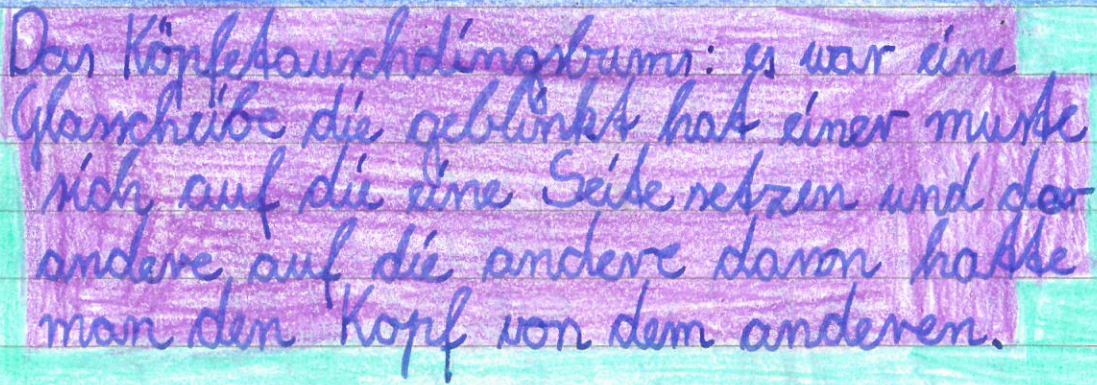 Das Köpfetauschdingsbums: es war eine
Glasscheibe die geblinkt hat einer muste
sich auf die eine Seite setzen und dar
andere auf die andere dann hatte
man den Kopf von dem anderen.